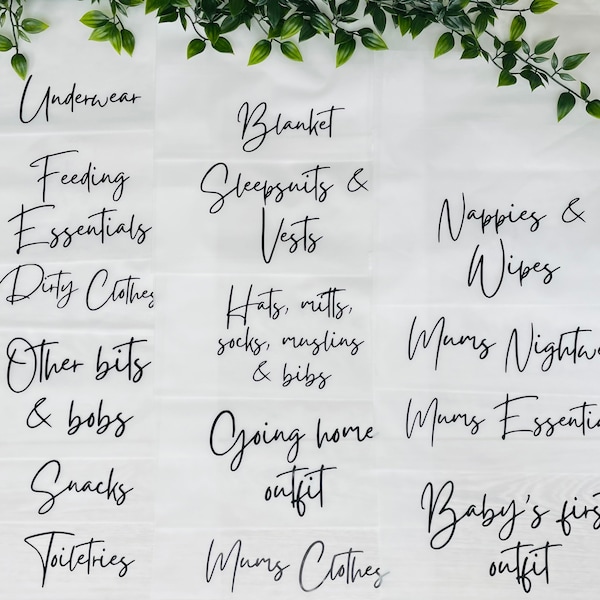 Underwear
Feeding
Essentials
Dirty Clothes
Other bits
& bobs
Snacks
Toiletries
Blanket
Sleepsuits &
Vests
Hats, mitts,
socks, muslins
& bibs
Going home
outfit
Mums Clothes
Nappies &
Wipes
Mums Nightwe
Mums Essentia
Baby's first
outfit